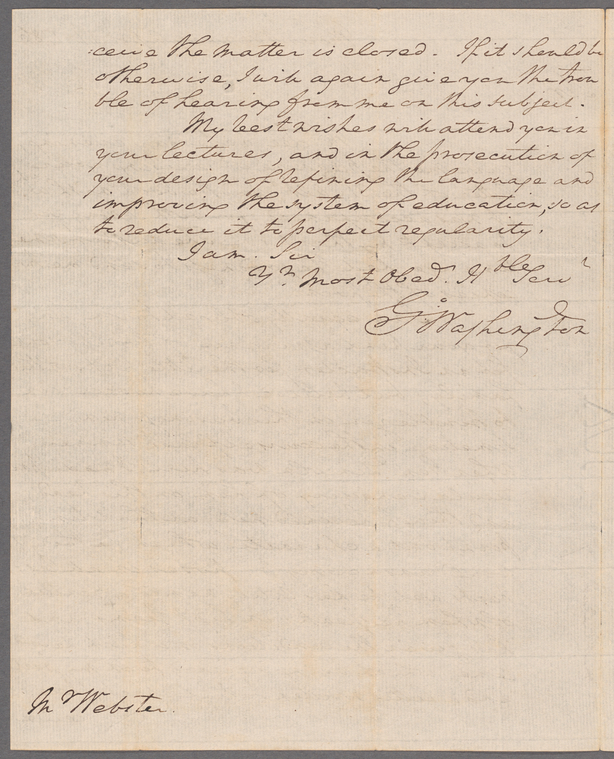 :ceive the matter is closed. If it should be
otherwise, I will again give you the trou
ble of hearing from me on this subject.
My best wishes will attend you in
your lectures, and in the prosecution of
your design of refining the language and
improving the system of education, so as
to reduce it to perfect regularity.
I am. Sir
Yr. Most Obedt. Hble Servt
Go: Washington
Mr Webster.